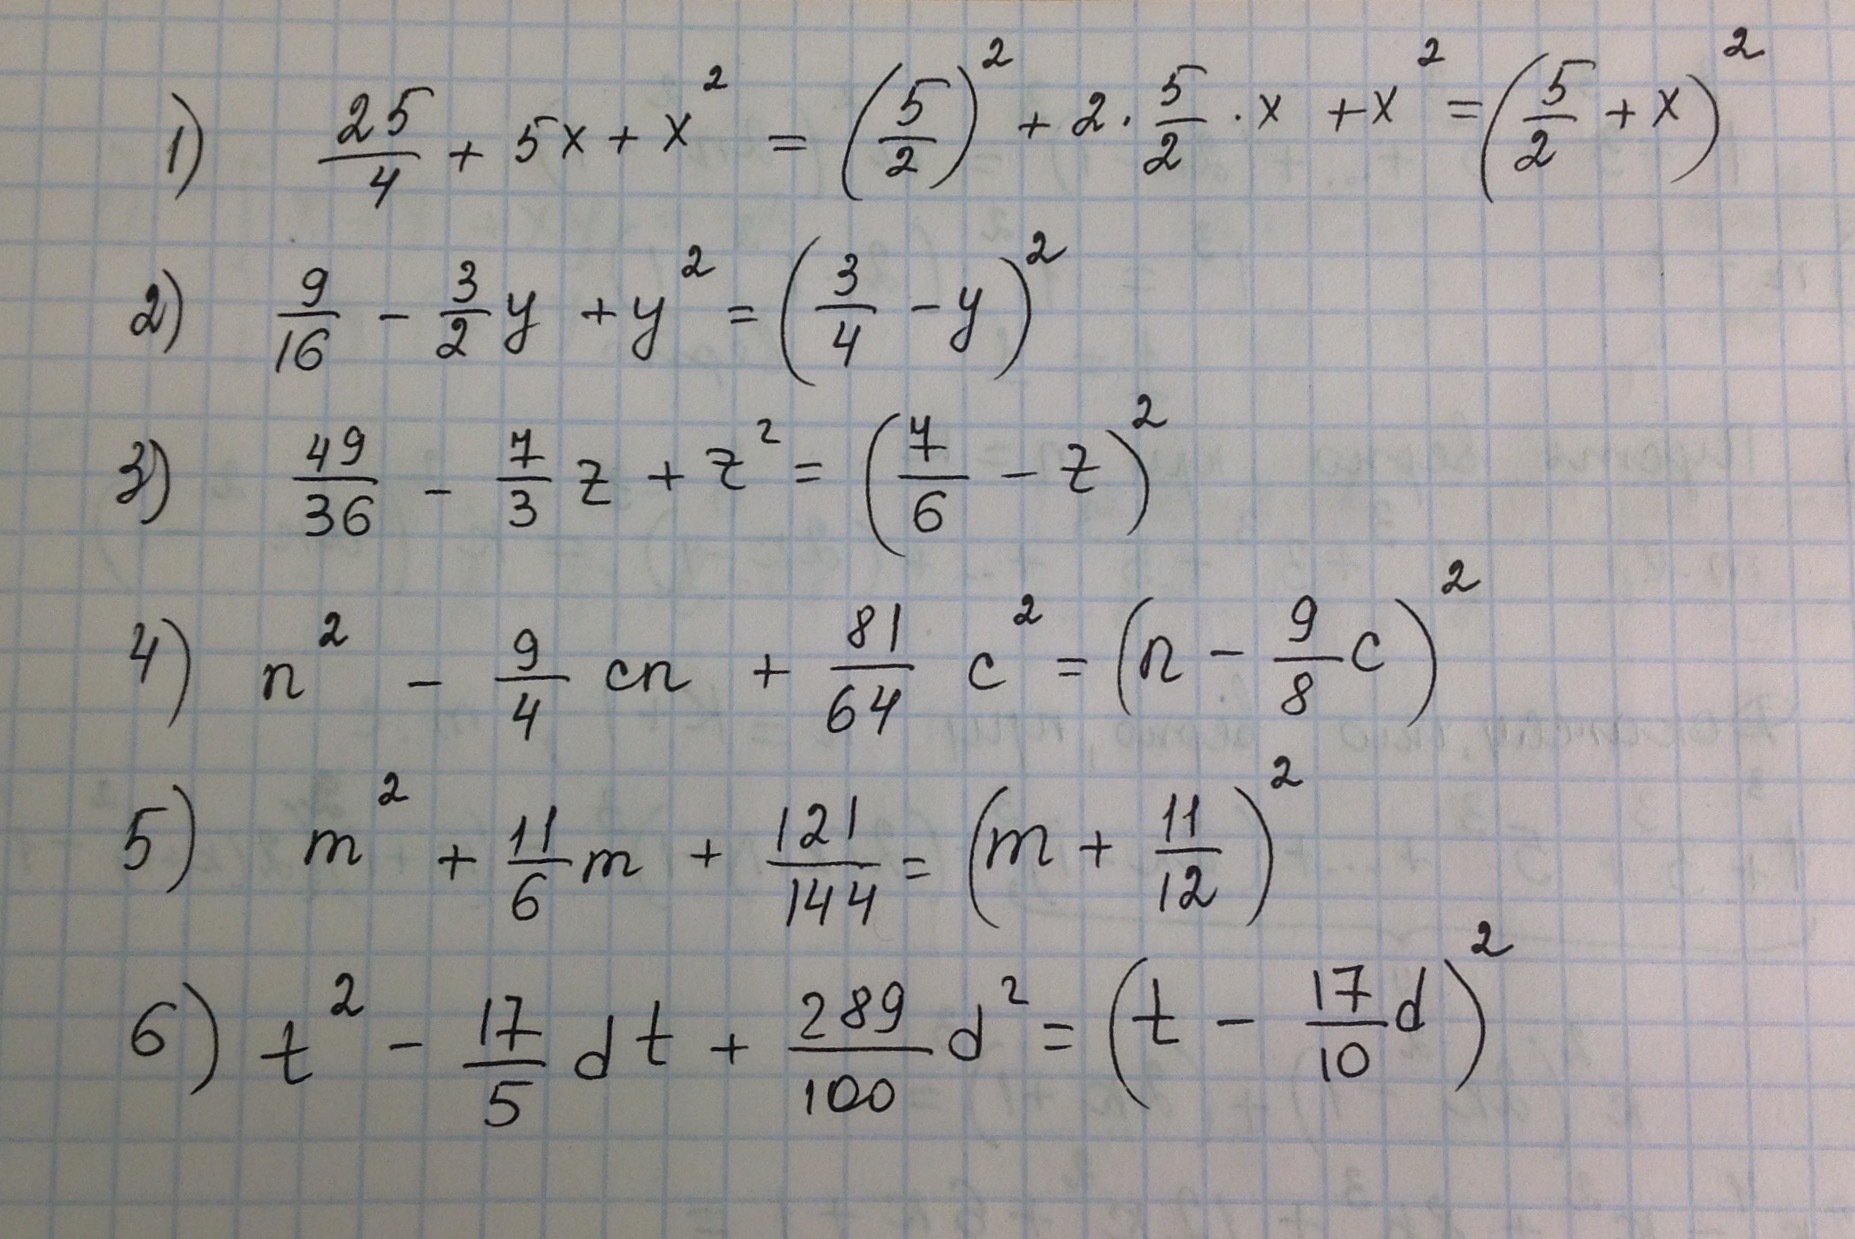 1) 25/4 + 5x + x² = (5/2)² + 2 · 5/2 · x + x² = (5/2 + x)²
2) 9/16 - 3/2 y + y² = (3/4 - y)²
3) 49/36 - 7/3 z + z² = (7/6 - z)²
4) n² - 9/4 cn + 81/64 c² = (n - 9/8 c)²
5) m² + 11/6 m + 121/144 = (m + 11/12)²
6) t² - 17/5 dt + 289/100 d² = (t - 17/10 d)²